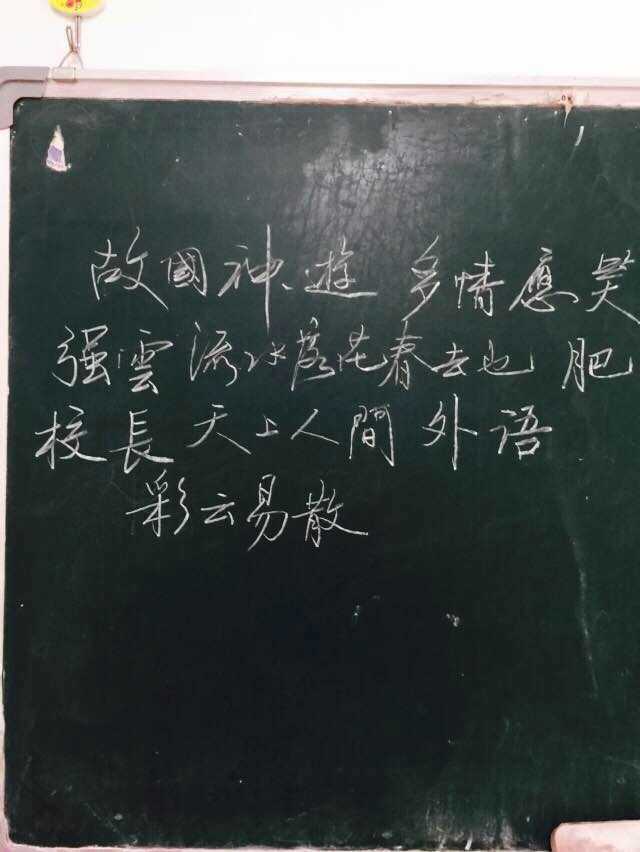 故國神遊 多情應笑
强雲流水落花春去也 肥
校長天上人間 外语
彩云易散